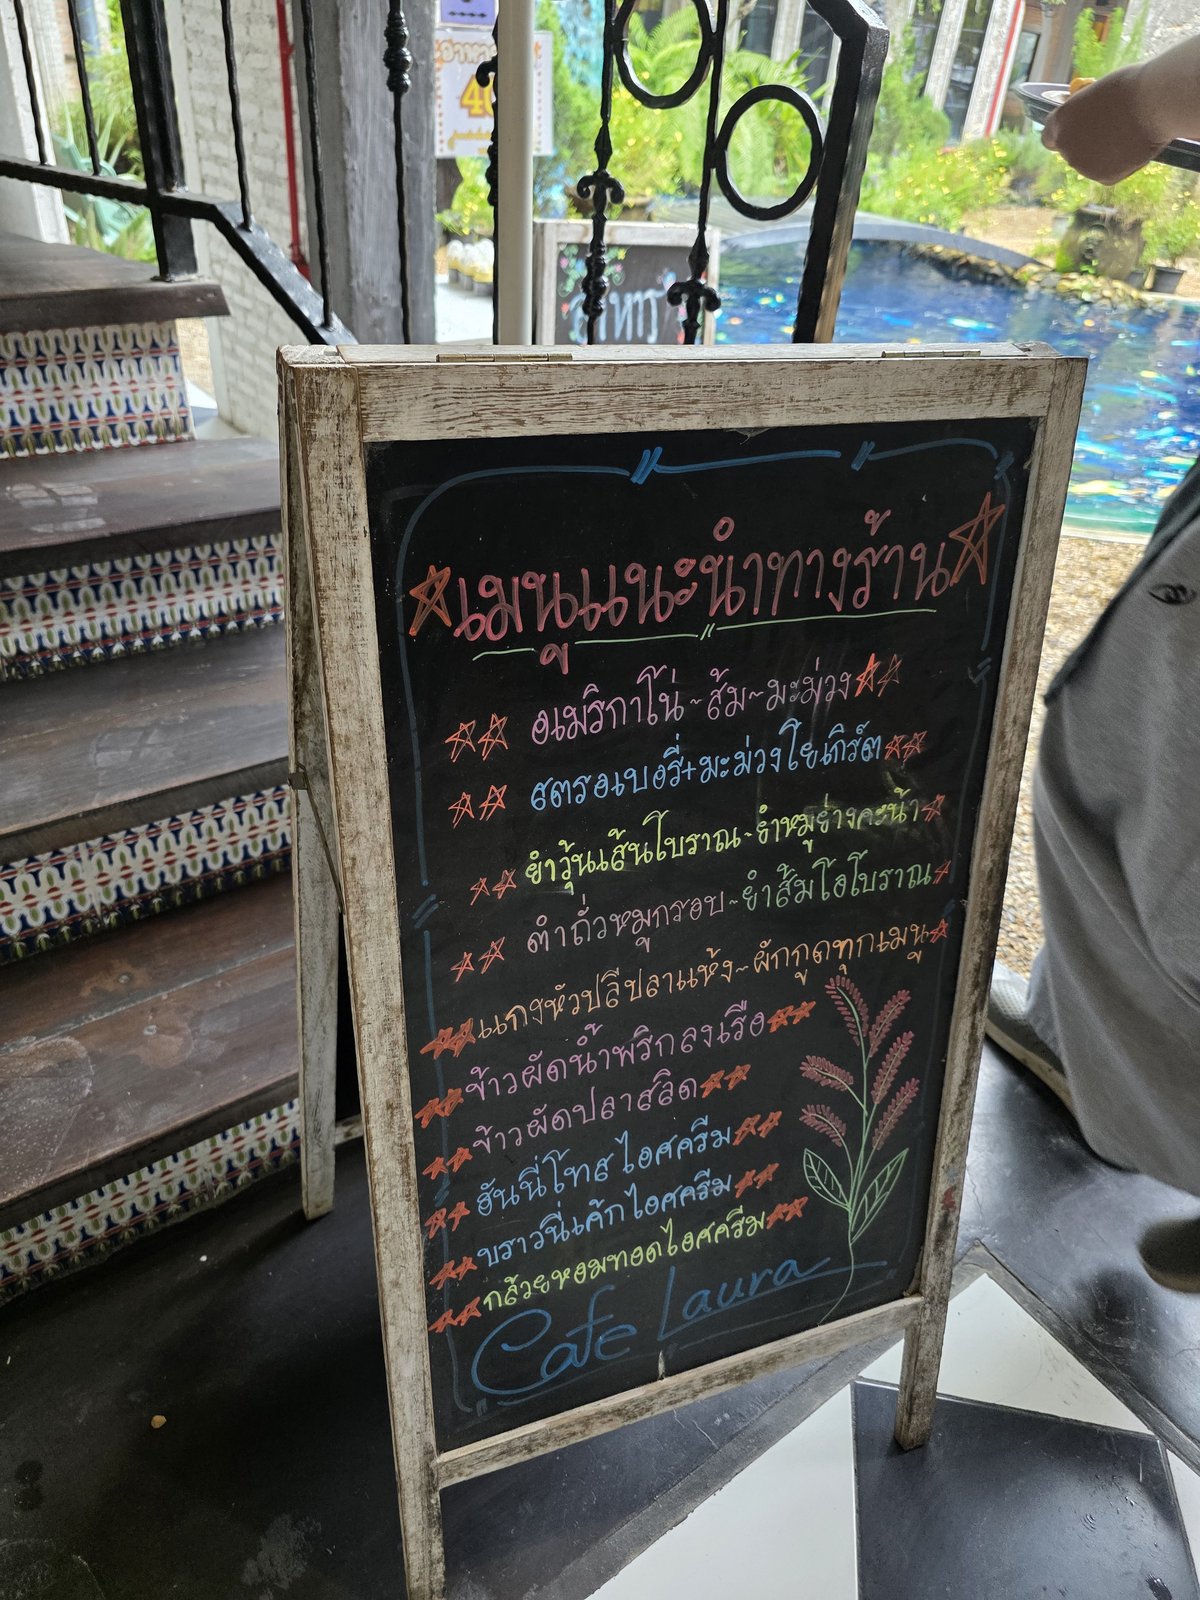 40
เมนูแนะนำทางร้าน
อเมริกาโน่~ส้ม~มะม่วง
สตรอเบอรี่+มะม่วงโยเกิร์ต
ยำวุ้นเส้นโบราณ~ยำหมูย่างคะน้า
ตำถั่วหมูกรอบ~ยำส้มโอโบราณ
แกงหัวปลีปลาแห้ง~ผักกูดทุกเมนู
ข้าวผัดน้ำพริกลงเรือ
ข้าวผัดปลาสลิด
ฮันนี่โทสไอศครีม
บราวนี่เค้กไอศครีม
กล้วยหอมทอดไอศครีม
Cafe Laura